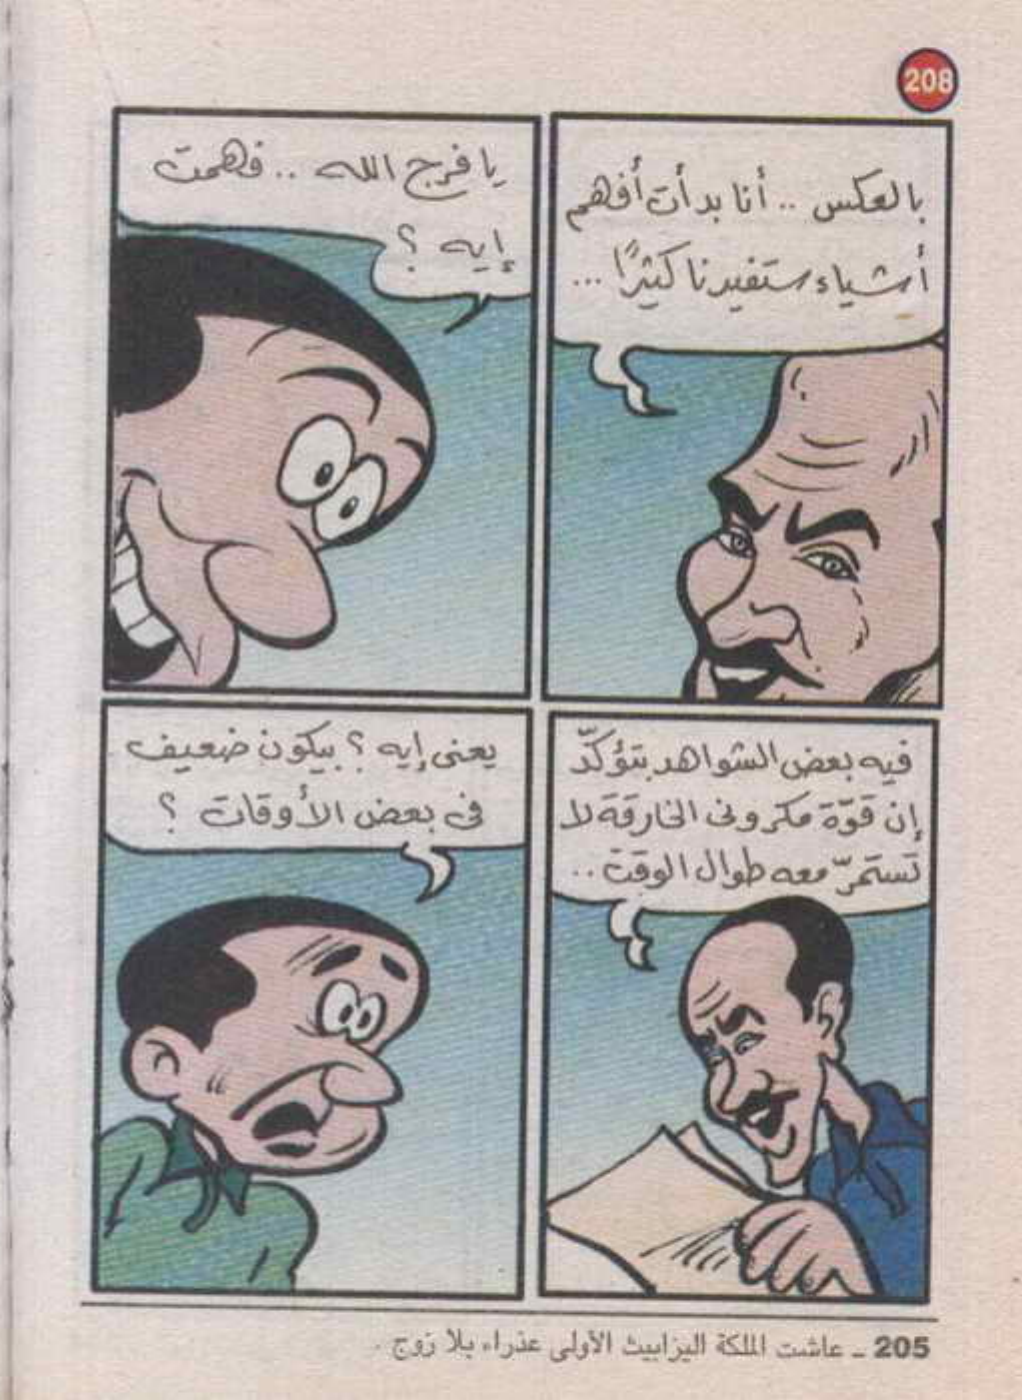 208
بالعكس .. أنا بدأت أفهم
أشياء ستفيدنا كثيرًا ...
يا فرج الله .. فهمت
إيه ؟
فيه بعض الشواهد بتؤكّد
إن قوّة مكرونى الخارقة لا
تستمرّ معه طوال الوقت ..
يعنى إيه ؟ بيكون ضعيف
فى بعض الأوقات ؟
205 ـ عاشت الملكة اليزابيث الأولى عذراء بلا زوج .